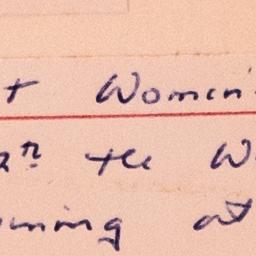 + Women'
the W
ning at